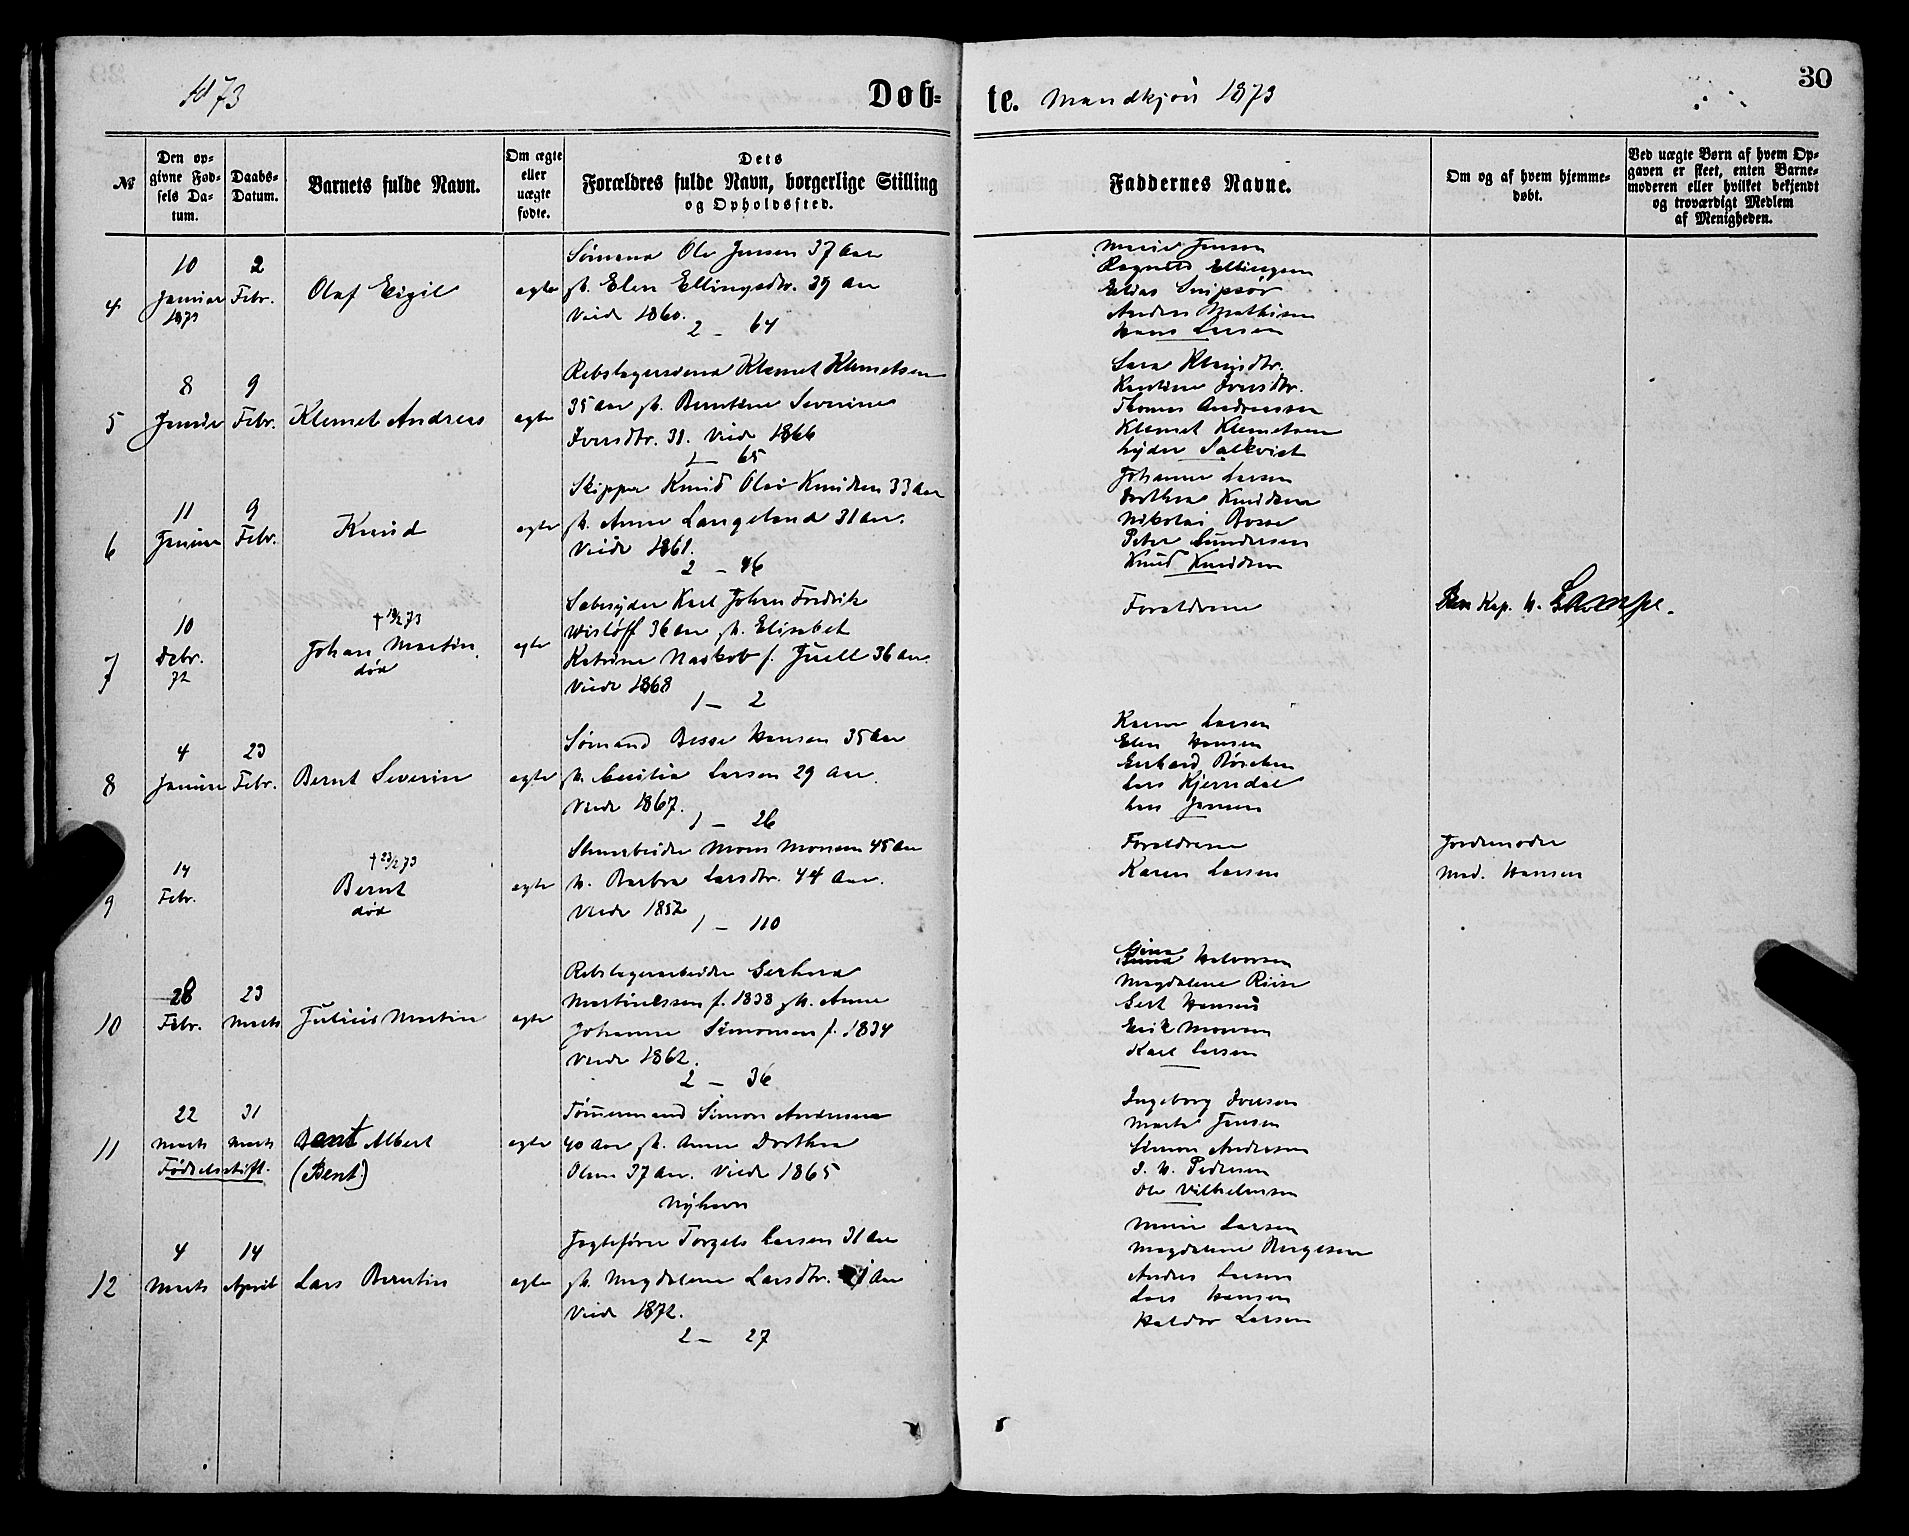 30
1873
Døb-
te. Mandkjøn 1873
№
Den op-
givne Fød-
sels Da-
tum.
Daabs-
Datum.
Barnets fulde Navn.
Om ægte
eller
uægte
fødte.
Dets
Forældres fulde Navn, borgerlige Stilling
og Opholdssted.
Faddernes Navne.
Om og af hvem hjemme-
døbt.
Ved uægte Børn af hvem Op-
gaven er skeet, enten Barne-
moderen eller hvilket bekjendt
og troværdigt Medlem
af Menigheden.
4
10
Januar
1873
2
Febr.
Olaf Eigil
ægte
Sømand Ole Jensen 37 Aar
gk. Elen Ellingsdtr. 39 Aar
Viede 1860.
2 - 64
Marie Jensen
Ragnild Ellingsen
Elias
Anders Mathisen
Hans Larsen
5
8
Januar
9
Febr.
Klemet Andreas
ægte
Rebslagersvend Klemet Klemetsen
35 Aar gk. Berntine Severine
Iversdtr. 31. Viede 1866
65
Sara
Iversdtr.
Thomas Andreassen
Klemet Klemetsen
Lyder Salkvist
6
11
Januar
9
Febr.
Knud
ægte
Skipper Knud Olai Knudsen 33 Aar
gk. Anne Langeland 31 Aar.
Viede 1861.
2 - 46
Johanne Larsen
Dorthea Knudsen
Nikolai Bosse
Peter Gundersen
Knud Knudsen
7
10
Debr.
72
† 73
Johan Martin
død
ægte
Sæbesyder Karl Johan Fredrik
Wisløff 36 Aar gk. Elisabet
Katrine f. Juell 36 Aar.
Viede 1868
1 - 2
Forældrene
Kap. H. Lampe.
8
4
Januar
23
Febr.
Bernt Severin
ægte
Sømand Besse Hansen 35 Aar
gk. Cecilia Larsen 29 Aar.
Viede 1867.
1 - 26
Karen Larsen
Elen Hansen
Gerhard
Lars Kjerrdal
Lars Jansen
9
14
Febr.
† 23/2 73
Bernt
død
ægte
Stuearbeider Mons Monsen 45 Aar
H. Barbra Larsdtr. 44 Aar.
Viede 1852
1 - 110
Forældrene
Karen Larsen
Jordemoder
Mad. Hansen
10
28
Febr.
23
Marts
Julius Martin
ægte
Rebslagerarbeider Gerhard
Martinussen f. 1838 gk. Anne
Johanne Simonsen f. 1834
Viede 1862.
2 - 36
Gina
Halvorsen
Magdalene Riise
Gert Hansen
Erik Monsen
Karl Larsen
11
22
Marts
31
Marts
Fødselsstift.
Bent Albert
(Bent)
ægte
Tømmermand Simon Andersen
40 Aar gk. Anne Dorthea
Olsen 37 Aar. Viede 1865
Nyhavn
Ingeborg Iversen
Marta Jensen
Simon Andersen
J. H. Pedersen
Ole Vilhelmsen
12
4
Marts
14
April
Lars Berntin
ægte
Jagtefører Torgels Larsen 31 Aar
gk. Magdalene Larsdtr. Aar
Viede 1872.
2 - 27
Marie Larsen
Magdalene Børgesen
Anders Larsen
Lars Hansen
Haldor Larsen